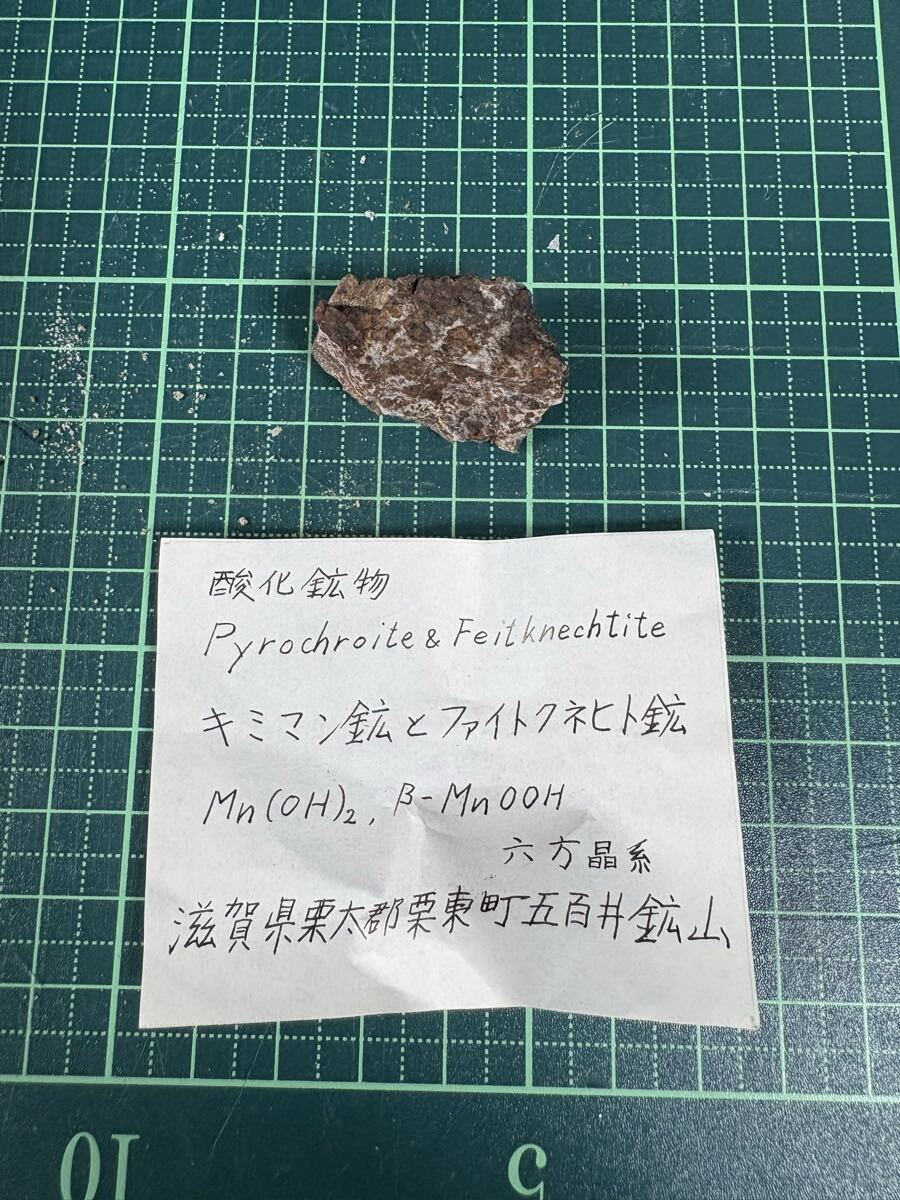 酸化鉱物
Pyrochroite & Feitknechtite
キミマン鉱とファイトクネヒト鉱
Mn(OH)₂, β-MnOOH
六方晶系
滋賀県栗太郡栗東町五百井鉱山
10 5